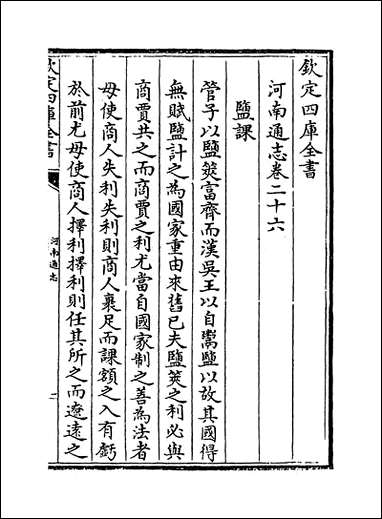 欽定四庫全書
河南通志卷二十六
鹽課
管子以鹽筴富齊而漢吳王以自鬻鹽以故其國得
無賦鹽計之為國家重由來舊已夫鹽筴之利必與
商賈共之而商賈之利尤當自國家制之善為法者
毋使商人失利失利則商人裹足而課額之入有虧
於前尤毋使商人擇利擇利則任其所之而遼遠之
欽定四庫全書
河南通志